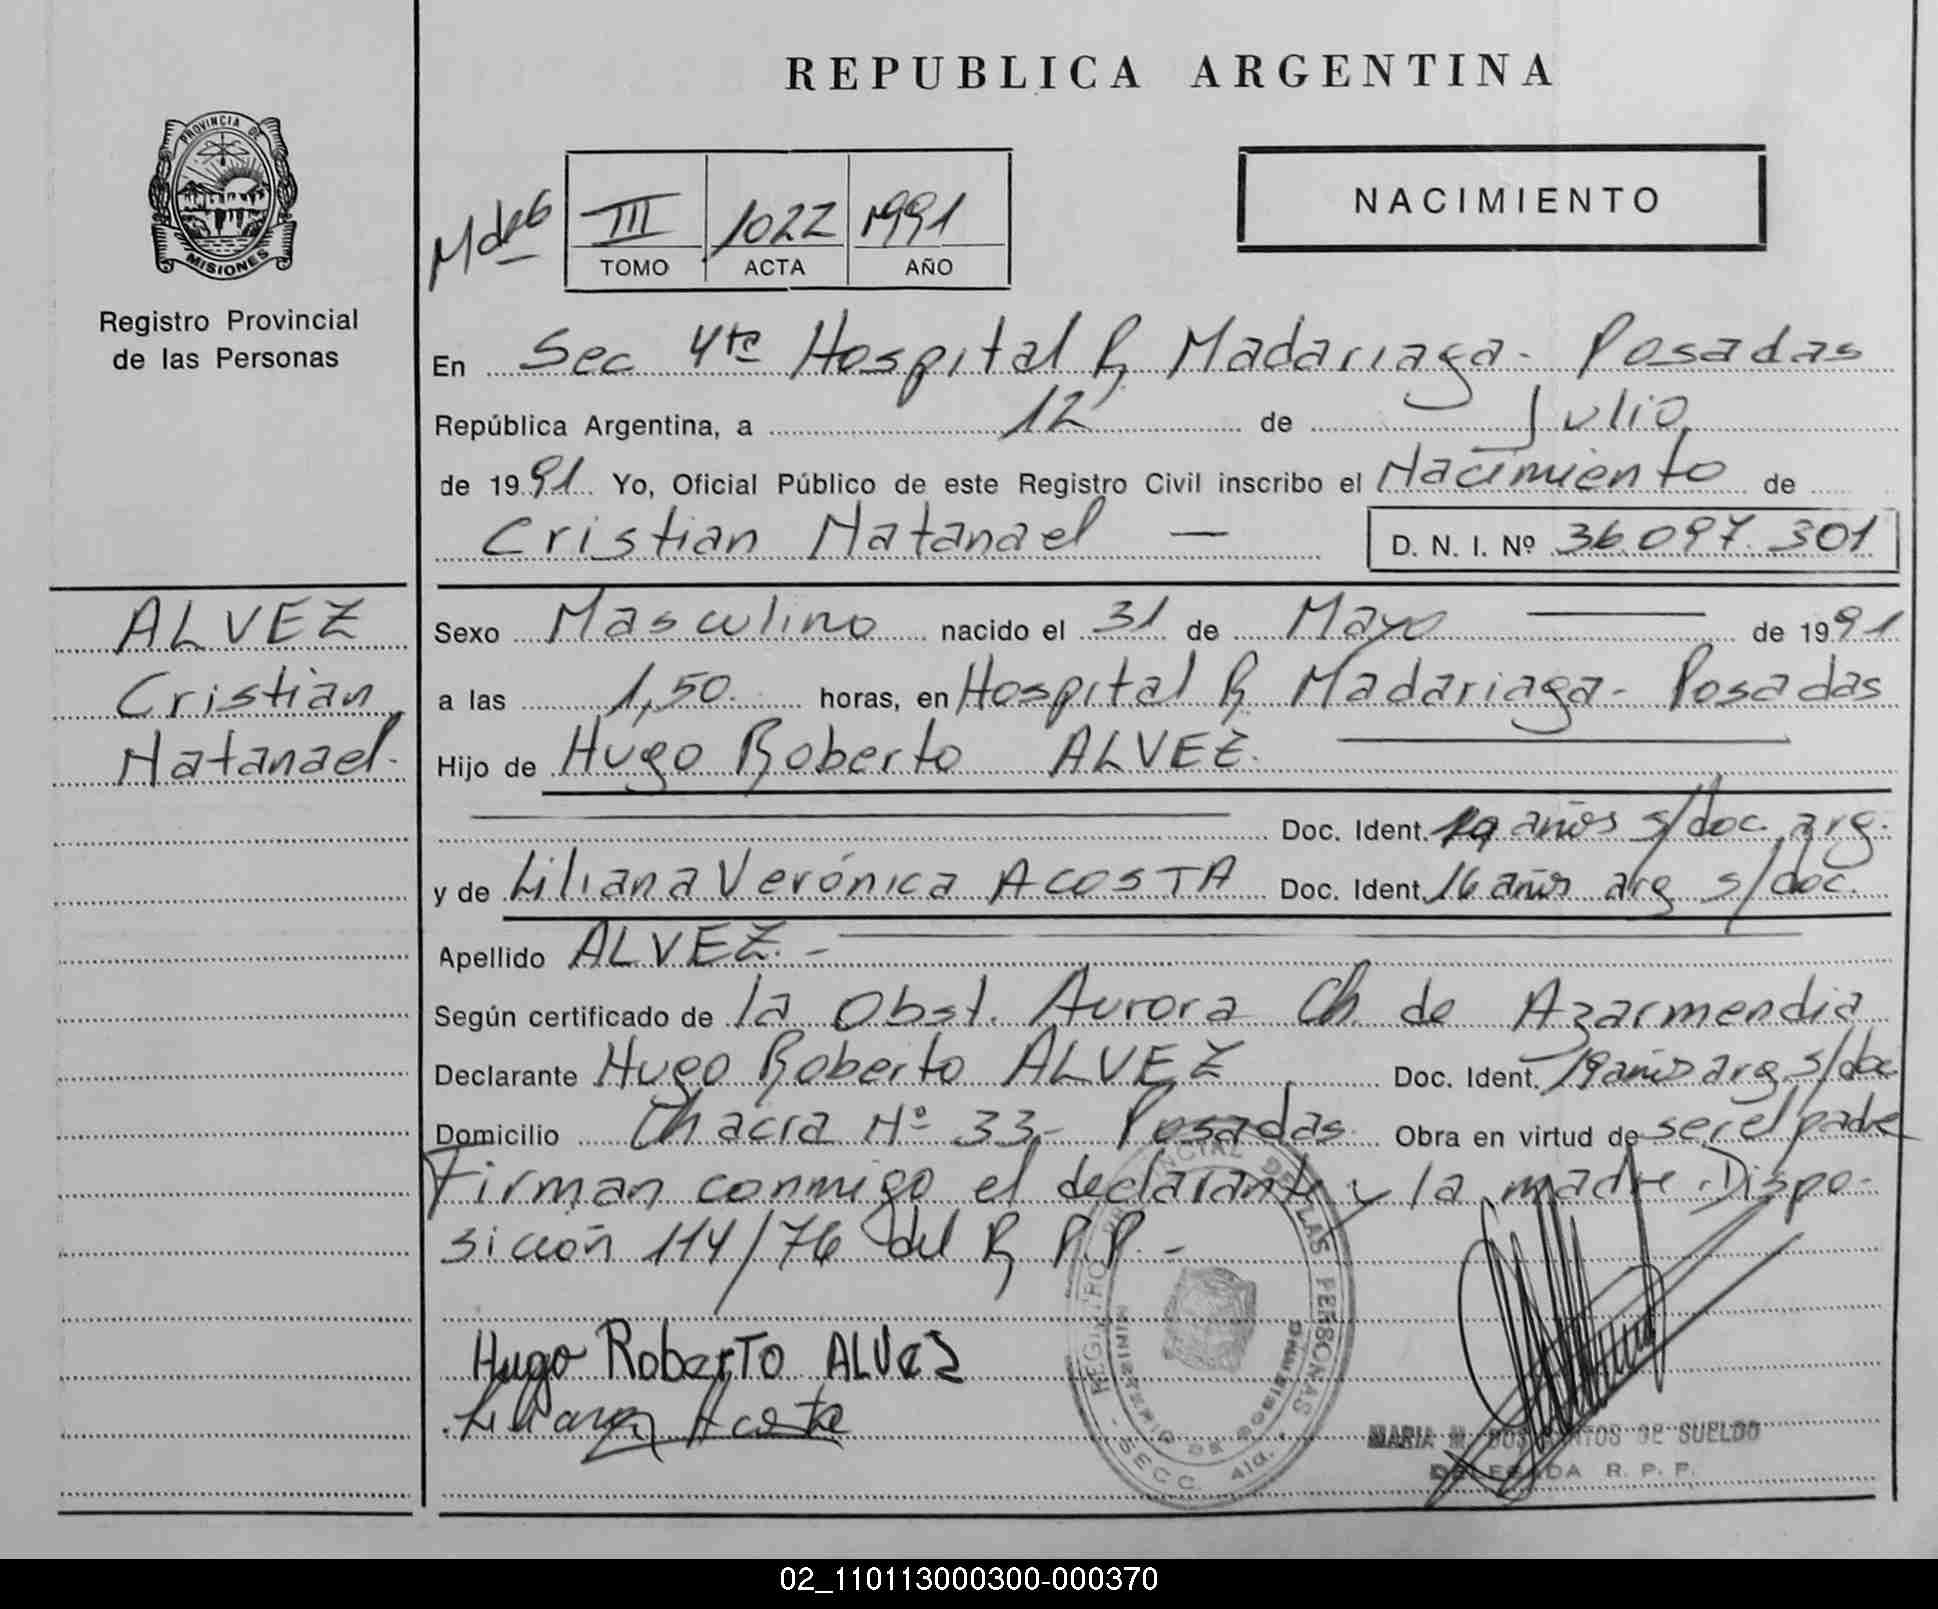 REPUBLICA ARGENTINA
PROVINCIA DE
MISIONES
Registro Provincial
de las Personas
III 1022 1991
TOMO ACTA AÑO
NACIMIENTO
En Sec 4ta Hospital R Madariaga - Posadas
República Argentina, a 12 de Julio
de 1991 Yo, Oficial Público de este Registro Civil inscribo el Nacimiento de
Cristian Natanael — D. N. I. Nº 36.097.301
ALVEZ
Cristian
Natanael.
Sexo Masculino nacido el 31 de Mayo de 1991
a las 1,50 horas, en Hospital R Madariaga - Posadas
Hijo de Hugo Roberto ALVEZ.
Doc. Ident. 19 años s/doc. arg.
y de Liliana Verónica ACOSTA Doc. Ident. 16 años arg s/doc.
Apellido ALVEZ. -
Según certificado de la Obst. Aurora Ch. de Azarmendia
Declarante Hugo Roberto ALVEZ Doc. Ident. 19 años arg. s/doc
Domicilio Chacra Nº 33.- Posadas Obra en virtud de ser el padre
Firman conmigo el declarante y la madre. Dispo-
sición 114/76 del R P.P. -
Hugo Roberto ALVEZ
Liliana Acosta
REGISTRO PROVINCIAL DE LAS PERSONAS
MINISTERIO DE GOBIERNO
SECC. 4ta.
MARIA M. DOS SANTOS DE SUELDO
DELEGADA R. P. P.
02_110113000300-000370